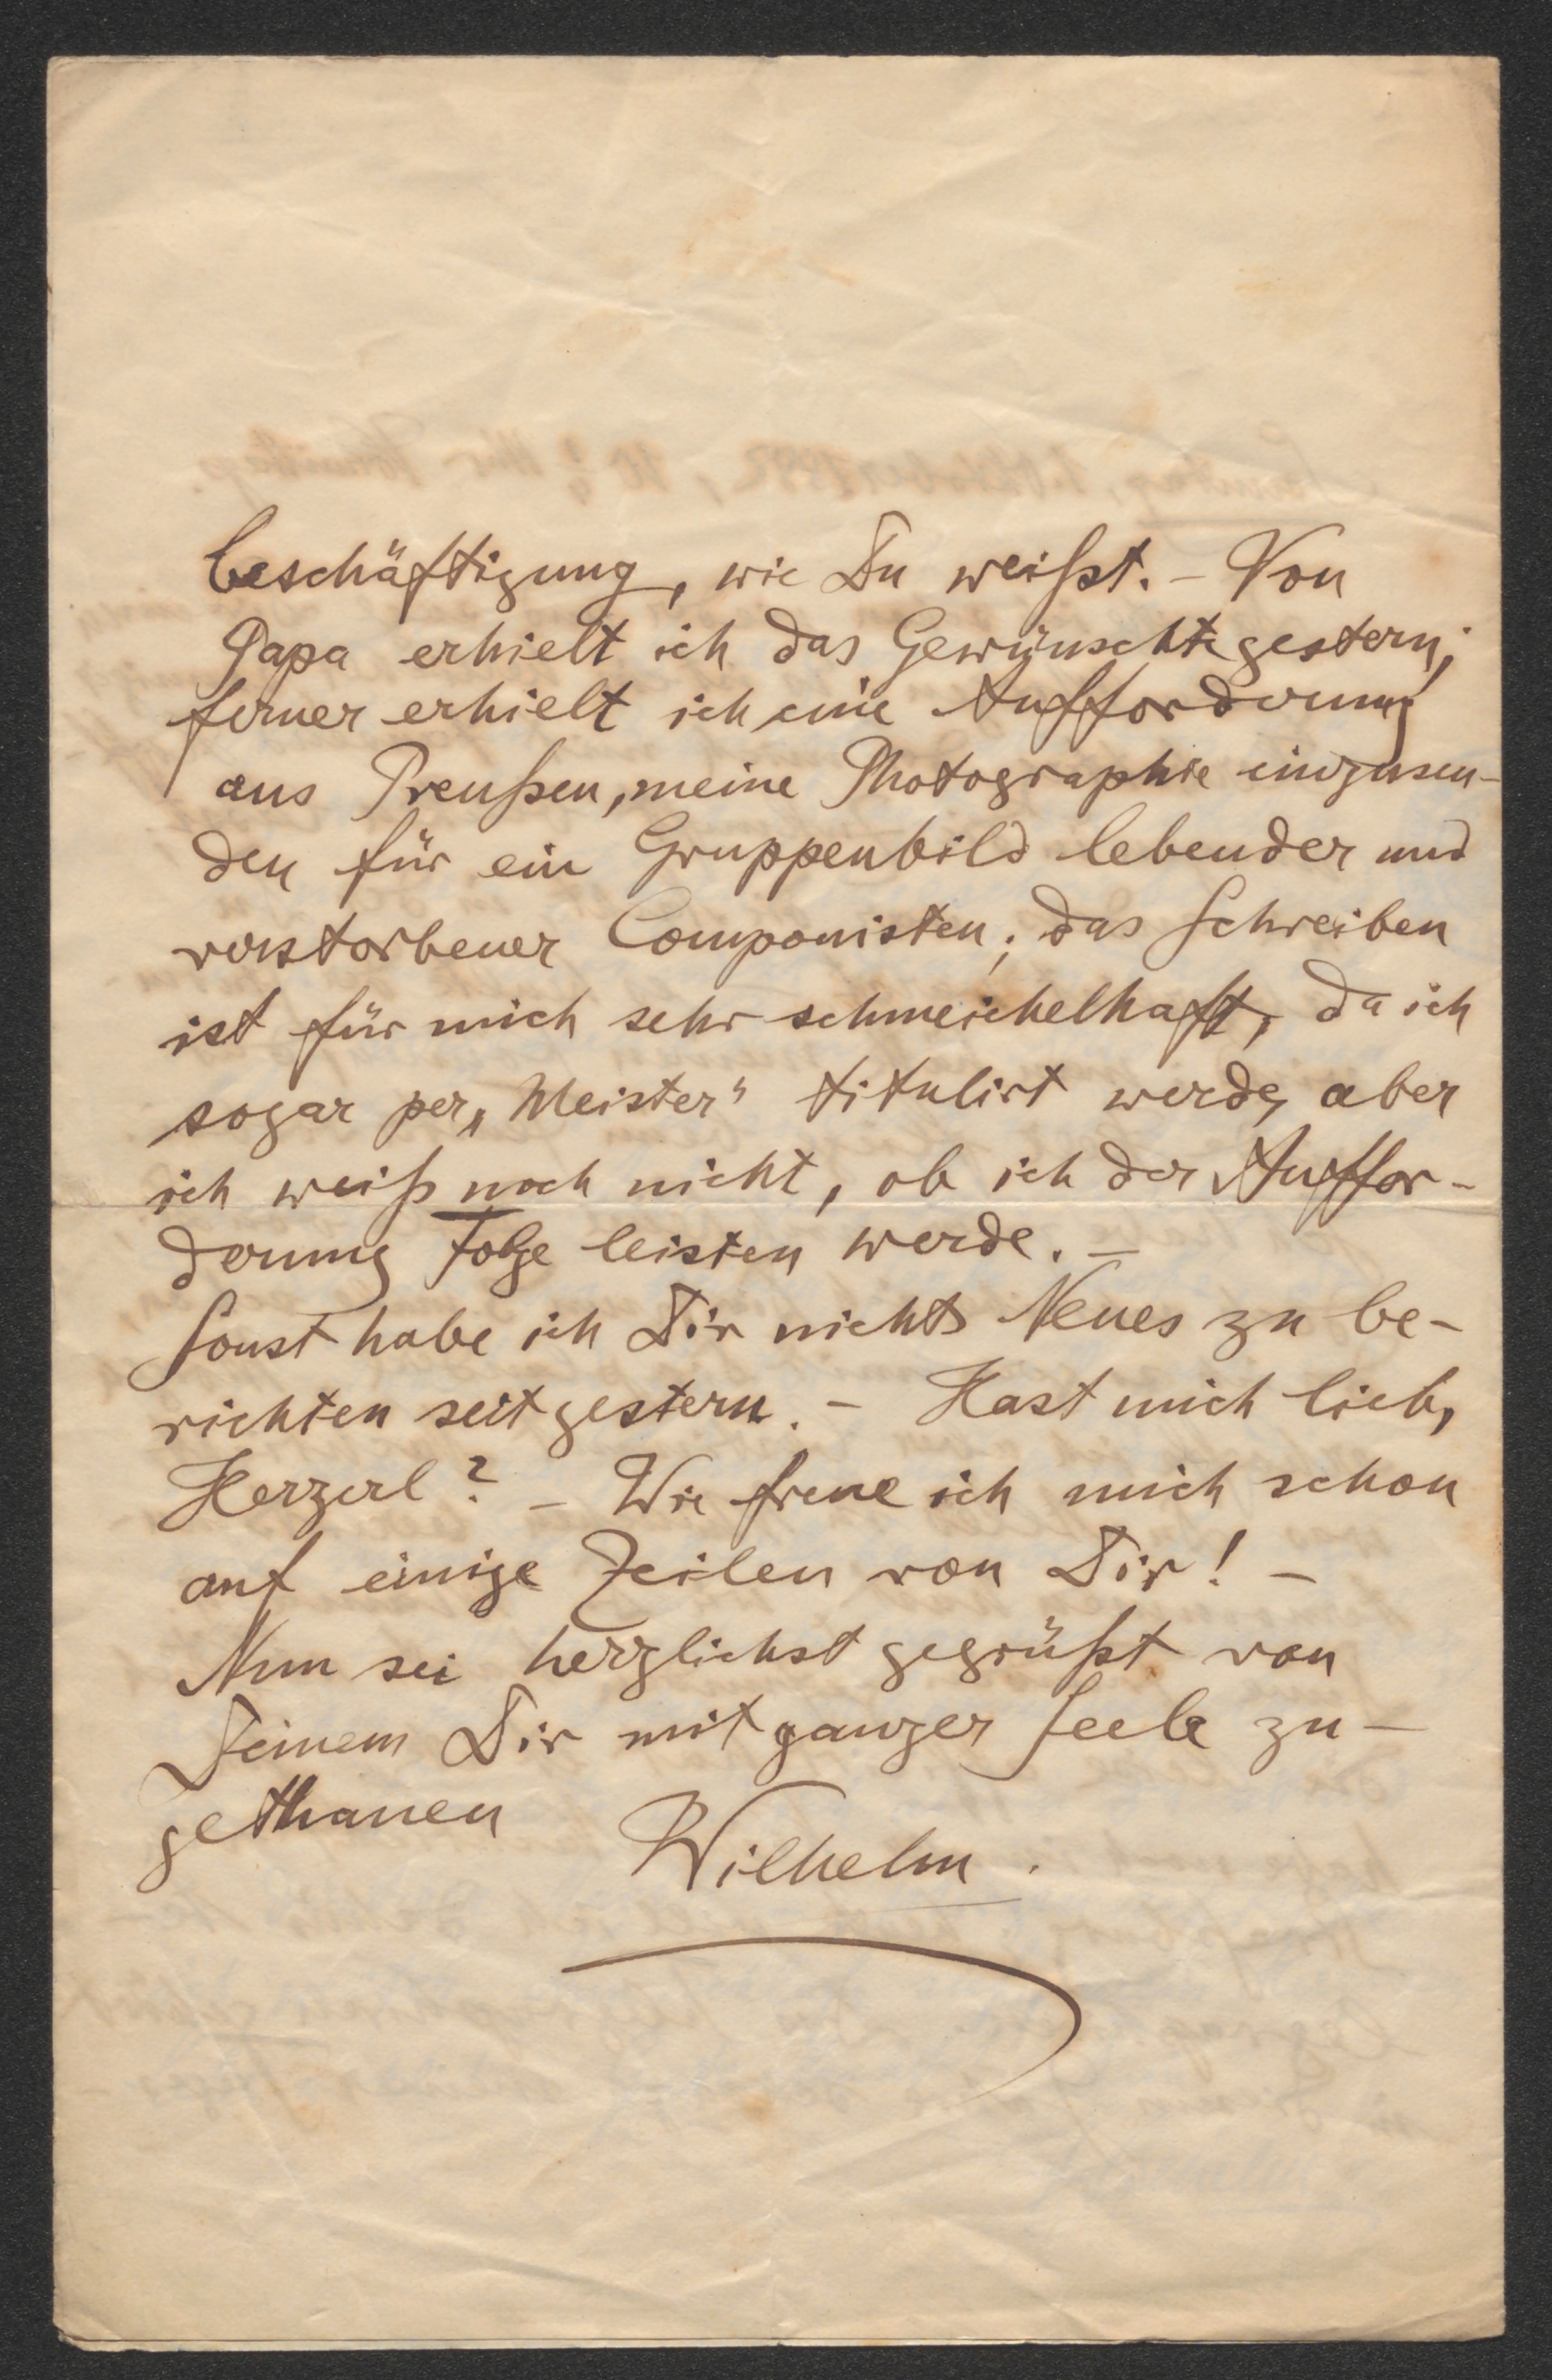 beschäftigung, wie Du weißt. – Von
Papa erhielt ich das Gewünschte gestern;
ferner erhielt ich eine Aufforderung
aus Preußen, meine Photographie einzusen-
den für ein Gruppenbild lebender und
verstorbener Componisten; das Schreiben
ist für mich sehr schmeichelhaft, da ich
sogar per „Meister“ titulirt werde, aber
ich weiß noch nicht, ob ich der Auffor-
derung Folge leisten werde. –
Sonst habe ich Dir nichts Neues zu be-
richten seit gestern. – Hast mich lieb,
Herzerl? – Wie freue ich mich schon
auf einige Zeilen von Dir! –
Nun sei herzlichst gegrüßt von
Deinem Dir mit ganzer Seele zu-
gethanen
Wilhelm.